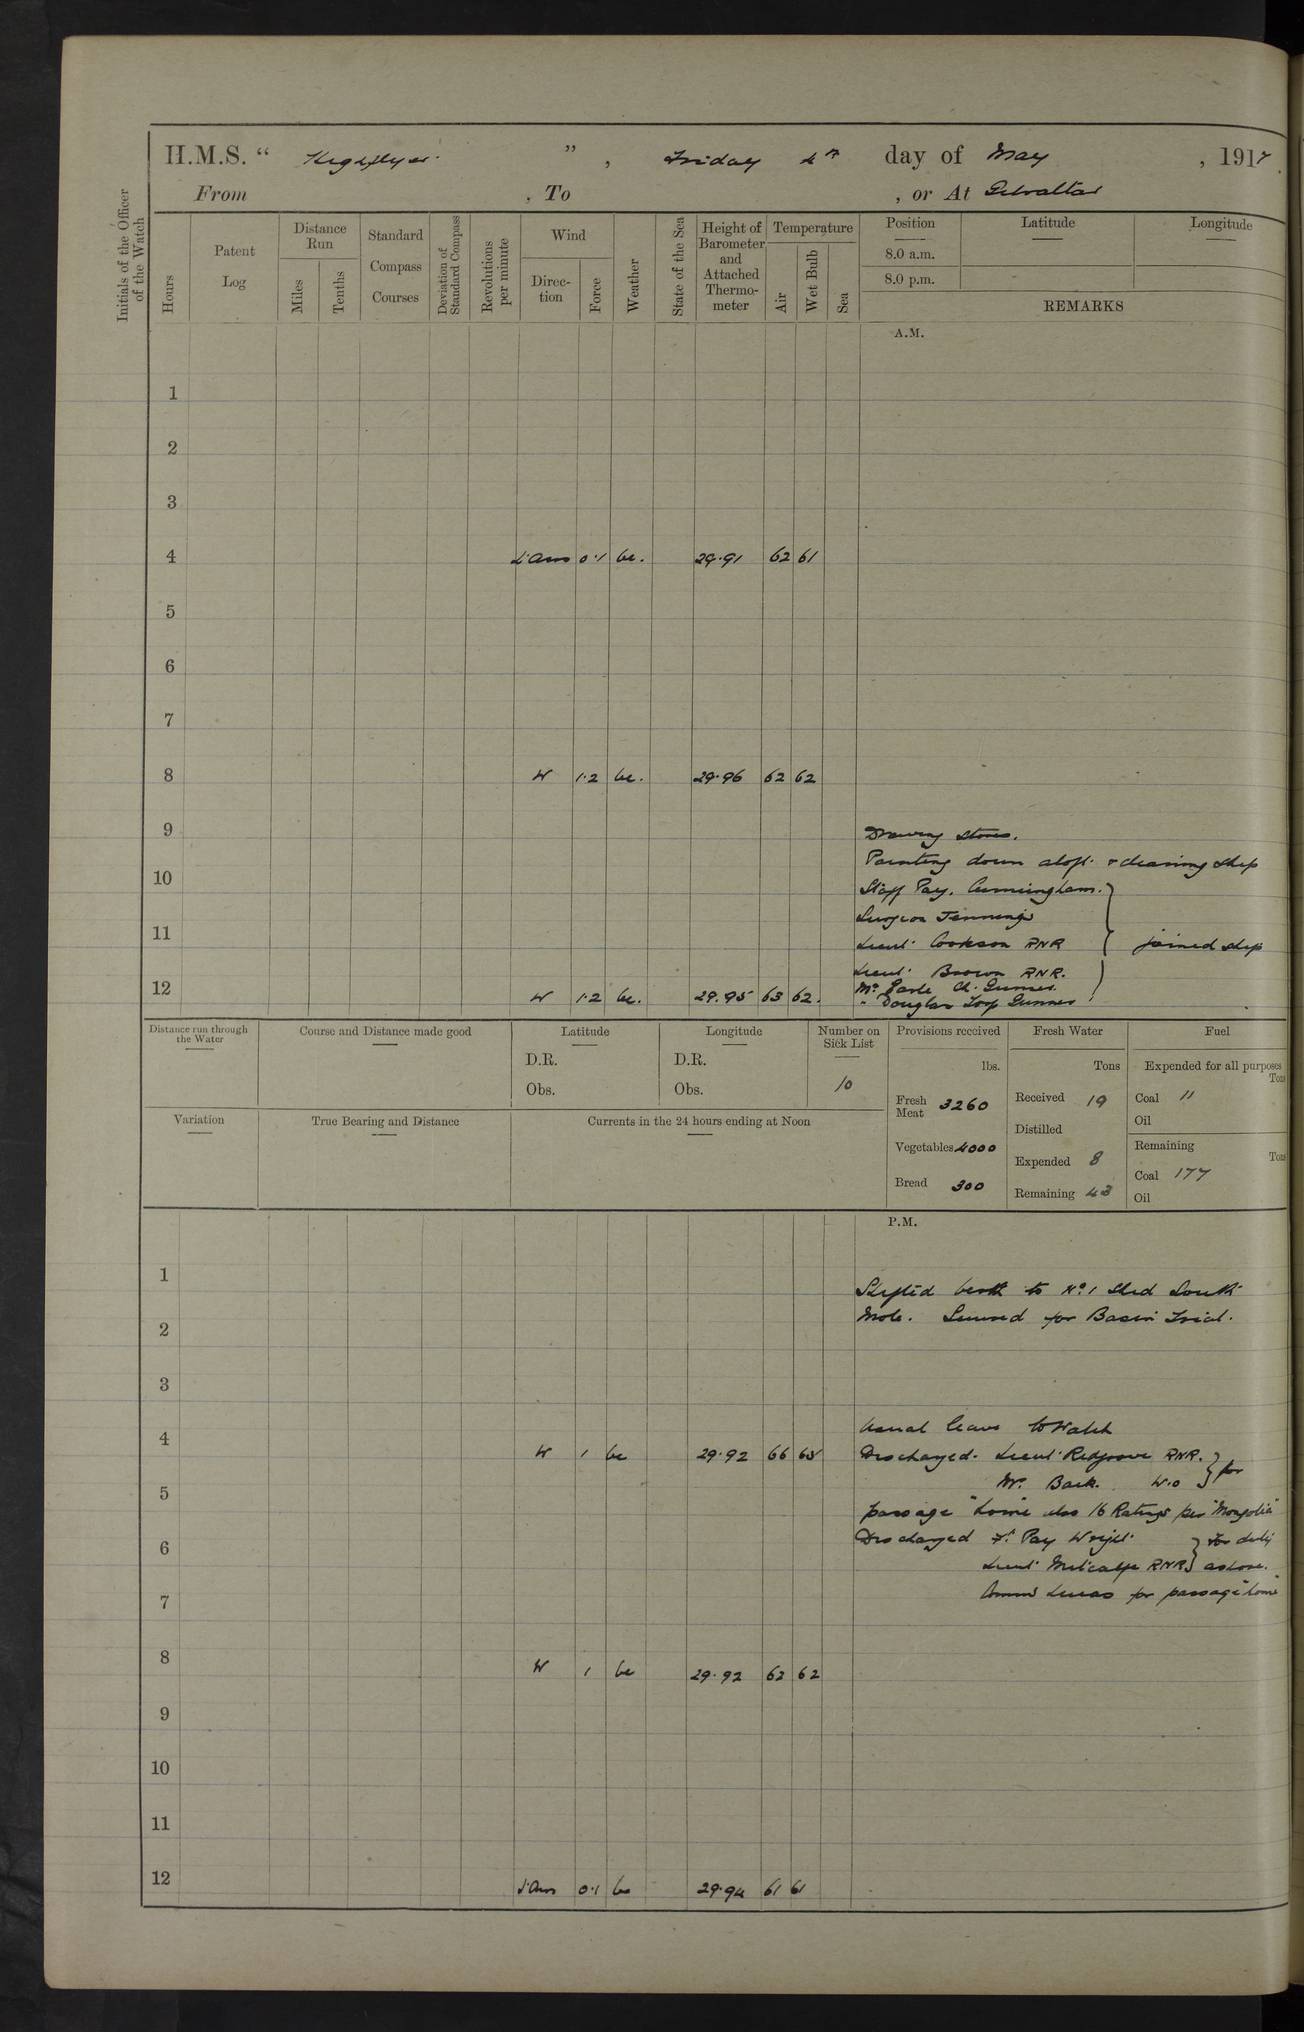 H.M.S. “ Highflyer. ” , Friday 4th day of May , 1917
From , To , or At Gibraltar
Initials of the Officer of the Watch
Hours
Patent Log
Distance Run
Miles
Tenths
Standard Compass Courses
Deviation of Standard Compass
Revolutions per minute
Wind
Direction
Force
Weather
State of the Sea
Height of Barometer and Attached Thermometer
Temperature
Air
Wet Bulb
Sea
Position
8.0 a.m.
8.0 p.m.
Latitude
Longitude
REMARKS
A.M.
1
2
3
4 L. Airs 0.1 bc. 29.91 62 61
5
6
7
8 W 1.2 bc. 29.96 62 62
9 Drawing stores.
Painting down aloft & cleaning ship
10 Staff Pay. Cunningham.
Surgeon Jennings
11 Lieut. Cookson RNR } joined ship
Lieut. Brown RNR.
12 W 1.2 bc. 29.95 63 62. Mr Earle Ch. Gunner.
" Douglas Torp Gunner
Distance run through the Water
Course and Distance made good
Latitude
D.R.
Obs.
Longitude
D.R.
Obs.
Number on Sick List
10
Variation
True Bearing and Distance
Currents in the 24 hours ending at Noon
Provisions received
lbs.
Fresh Meat 3260
Vegetables 4000
Bread 300
Fresh Water
Tons
Received 19
Distilled
Expended 8
Remaining 43
Fuel
Expended for all purposes
Tons
Coal 11
Oil
Remaining
Tons
Coal 177
Oil
P.M.
1
Shifted berth to No. 1 Shed South
2 Mole. Secured for Basin Trial.
3
4 Usual leave to Watch
W 1 bc 29.92 66 65 Discharged. Lieut. Redgrove RNR. } for
5 Mr. Back. W.O
passage "home" also 16 Ratings per "Mongolia"
6 Discharged Ft. Pay Wright } for duty
Lieut Metcalfe RNR } ashore.
7 Comm Lucas for passage "home"
8 W 1 bc 29.92 62 62
9
10
11
12 L. Airs 0.1 bc 29.94 61 61